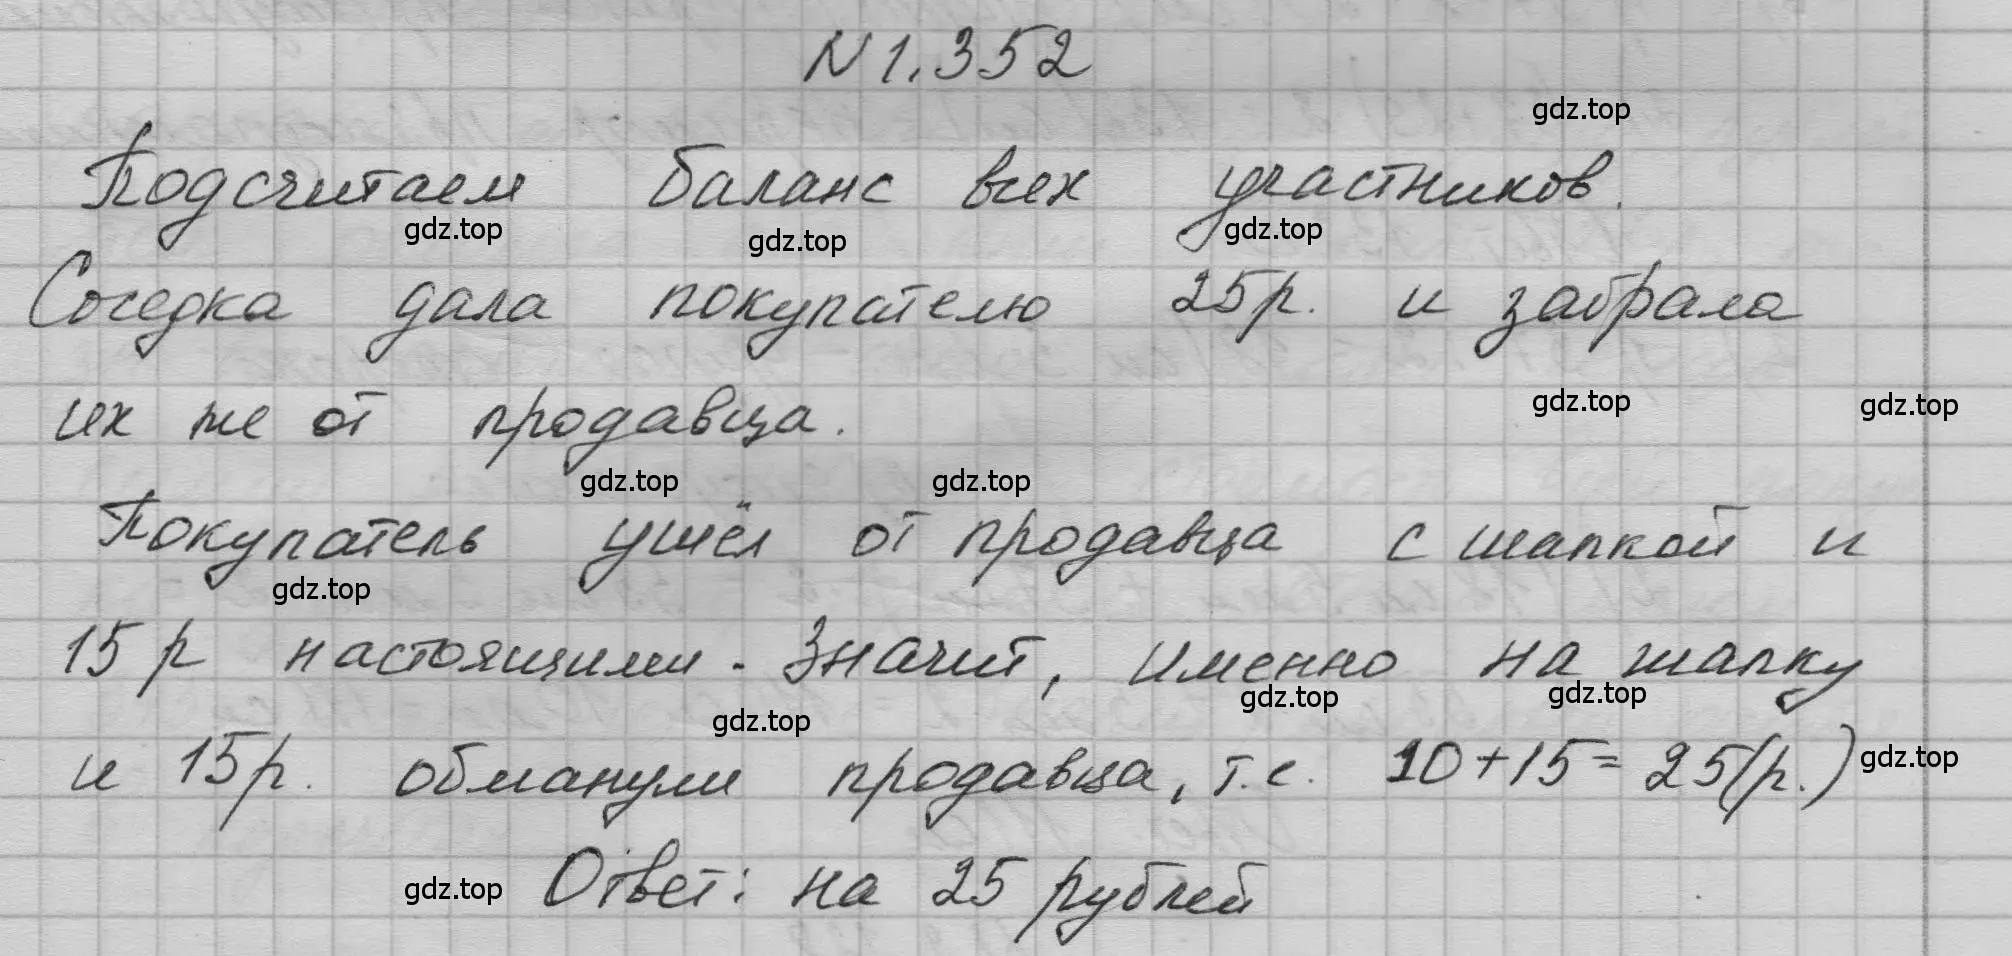 N 1.352
Подсчитаем баланс всех участников.
Соседка дала покупателю 25р. и забрала
их же от продавца.
Покупатель ушёл от продавца с шапкой и
15 р настоящими. Значит, именно на шапку
и 15р. обманули продавца, т.е. 10+15=25(р.)
Ответ: на 25 рублей
gdz.top
gdz.top
gdz.top
gdz.top
gdz.top
gdz.top
gdz.top
gdz.top
gdz.top
gdz.top
gdz.top
gdz.top
gdz.top
gdz.top